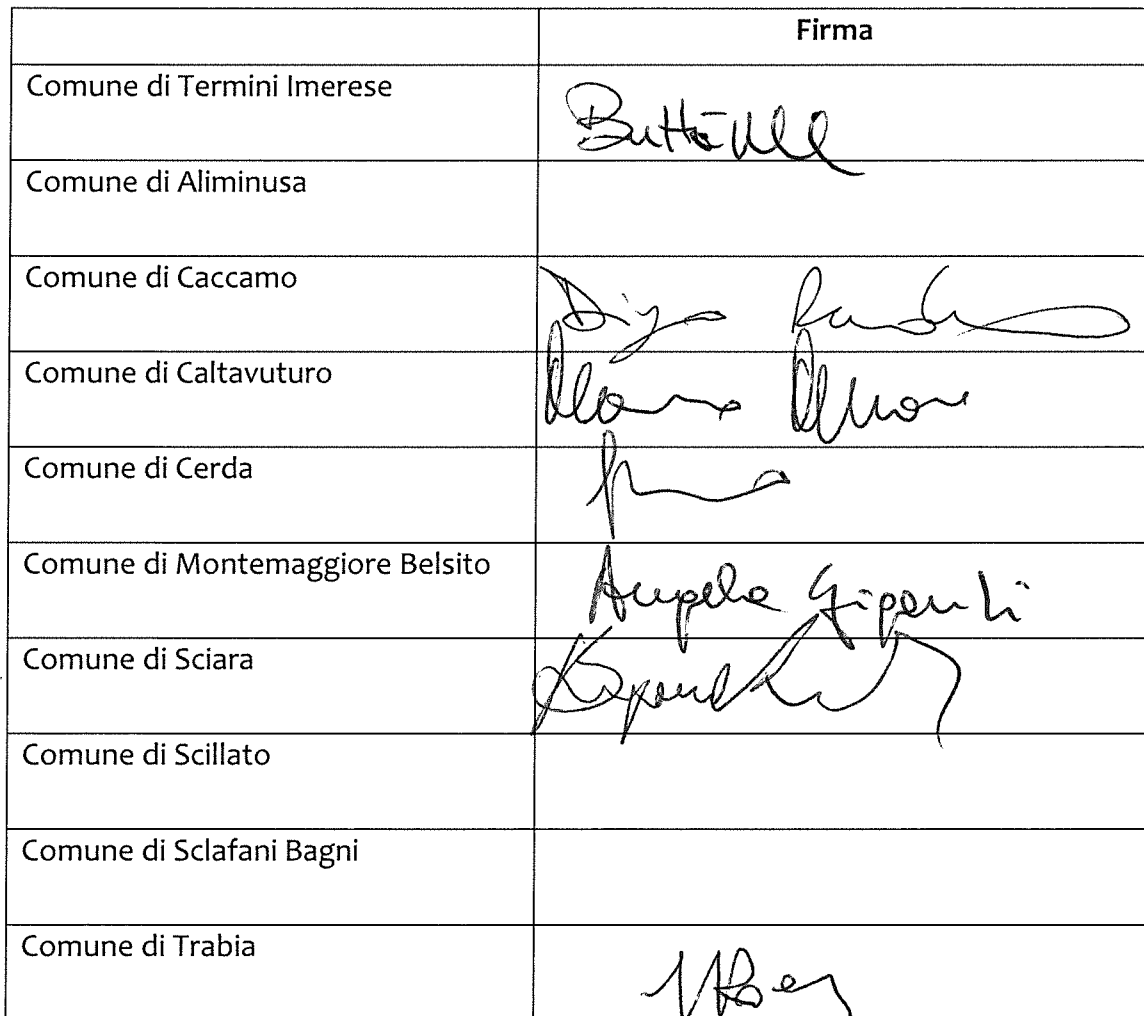 Firma
Comune di Termini Imerese
Comune di Aliminusa
Comune di Caccamo
Comune di Caltavuturo
Comune di Cerda
Comune di Montemaggiore Belsito
Angela Giganti
Comune di Sciara
Comune di Scillato
Comune di Sclafani Bagni
Comune di Trabia